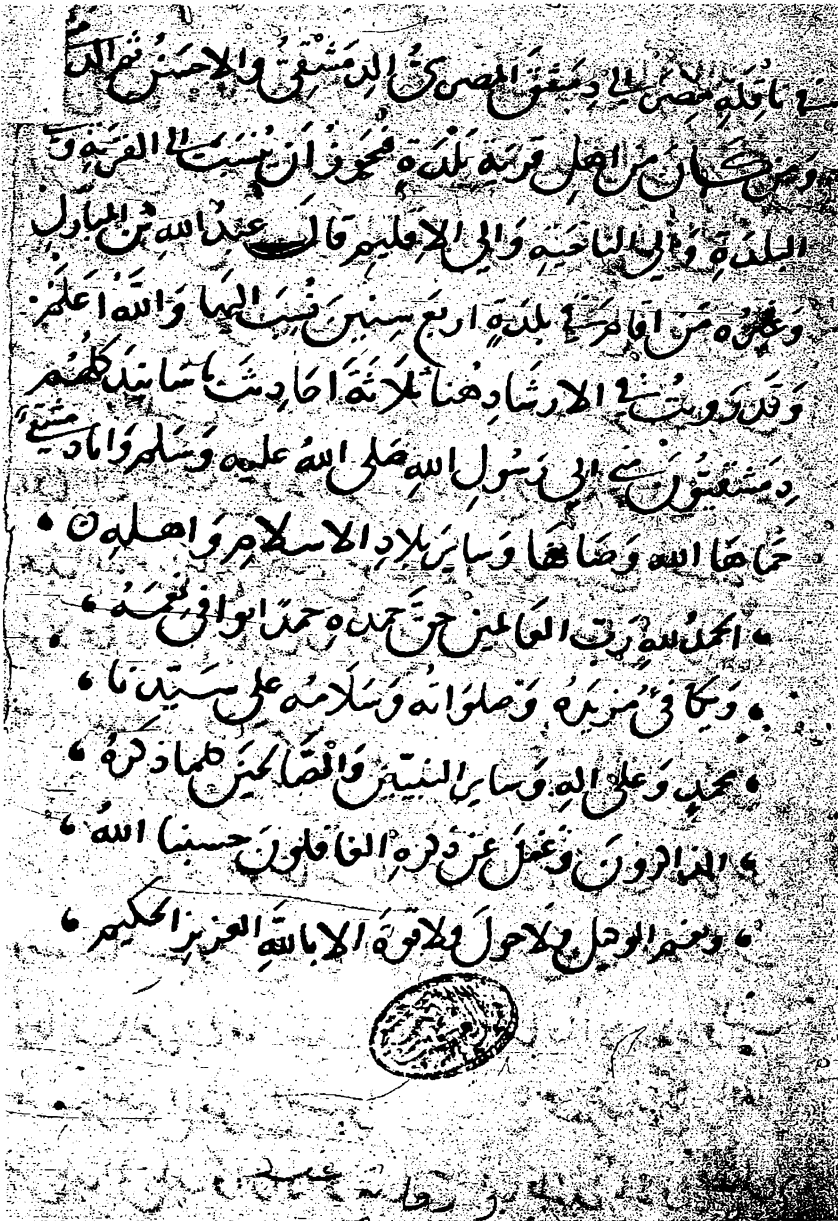 في ناقلة مصر الي دمشق المصري الدمشقي والاحسن ثم الد
ومن كان من اهل قرية بلدة فيجوز ان ينسب الى القرية و
البلدة والي الناحية والي الاقليم قال عبد الله بن المبارك
وغيره من اقام في بلدة اربع سنين نسب اليها والله اعلم
وقد رويت في الارشاد هنا ثلاثة احاديث باسانيد كلهم
دمشقيون مني الى رسول الله صلى الله عليه وسلم وانا دمشقي
حماها الله وصانها وساير بلاد الاسلام واهله
الحمد لله رب العالمين حق حمده حمدا يوافي نعمه
ويكافئ مزيده وصلواته وسلامه على سيدنا
محمد وعلى اله وساير النبيين والصالحين كلما ذكره
الذاكرون وغفل عن ذكره الغافلون حسبنا الله
ونعم الوكيل ولا حول ولا قوة الا بالله العزيز الحكيم